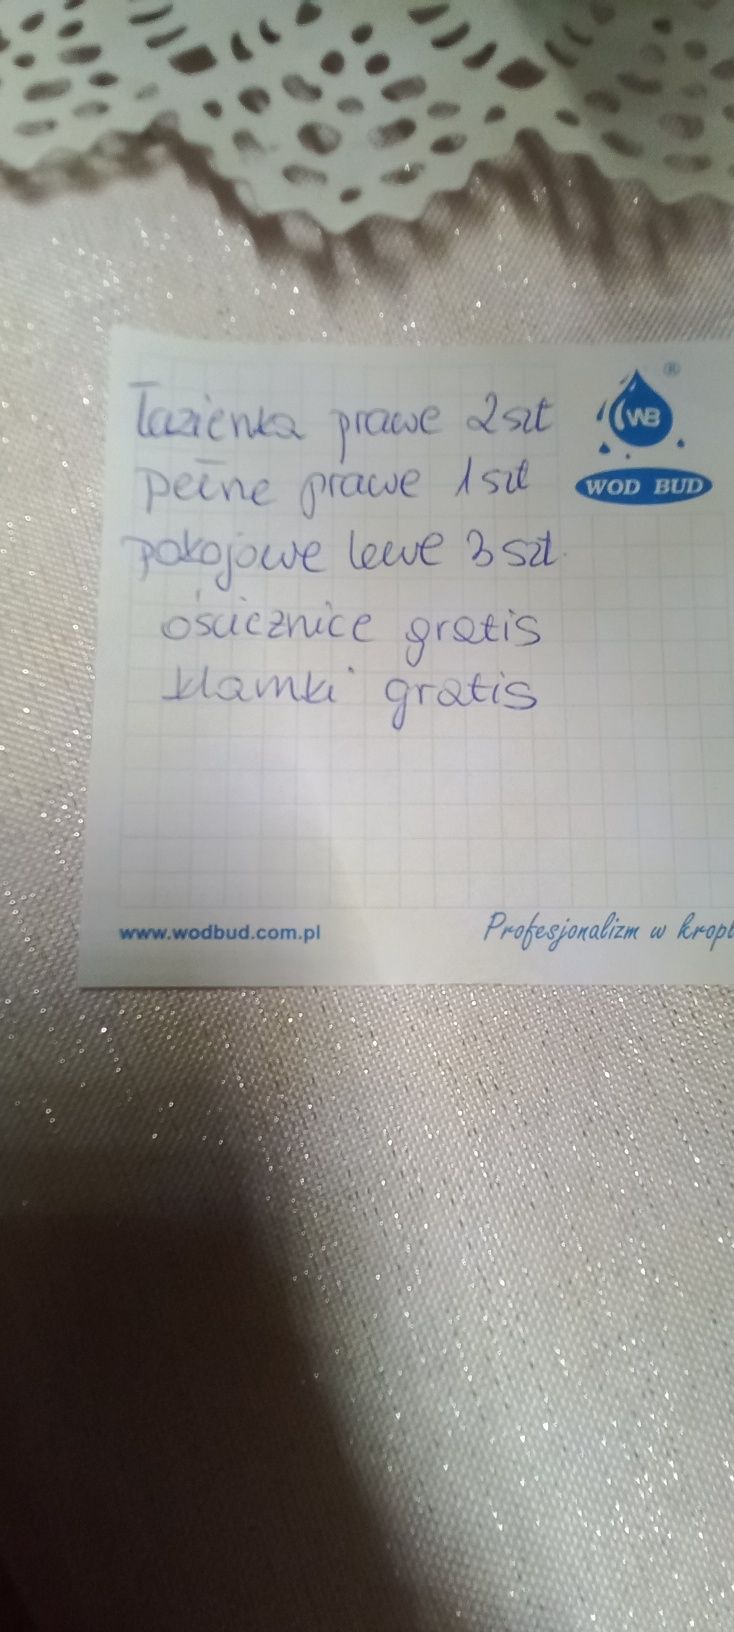 Łazienka prawe 2szt
pełne prawe 1szt
pokojowe lewe 3szt.
ościeżnice gratis
klamki gratis
®
WB
WOD BUD
www.wodbud.com.pl
Profesjonalizm w kropl